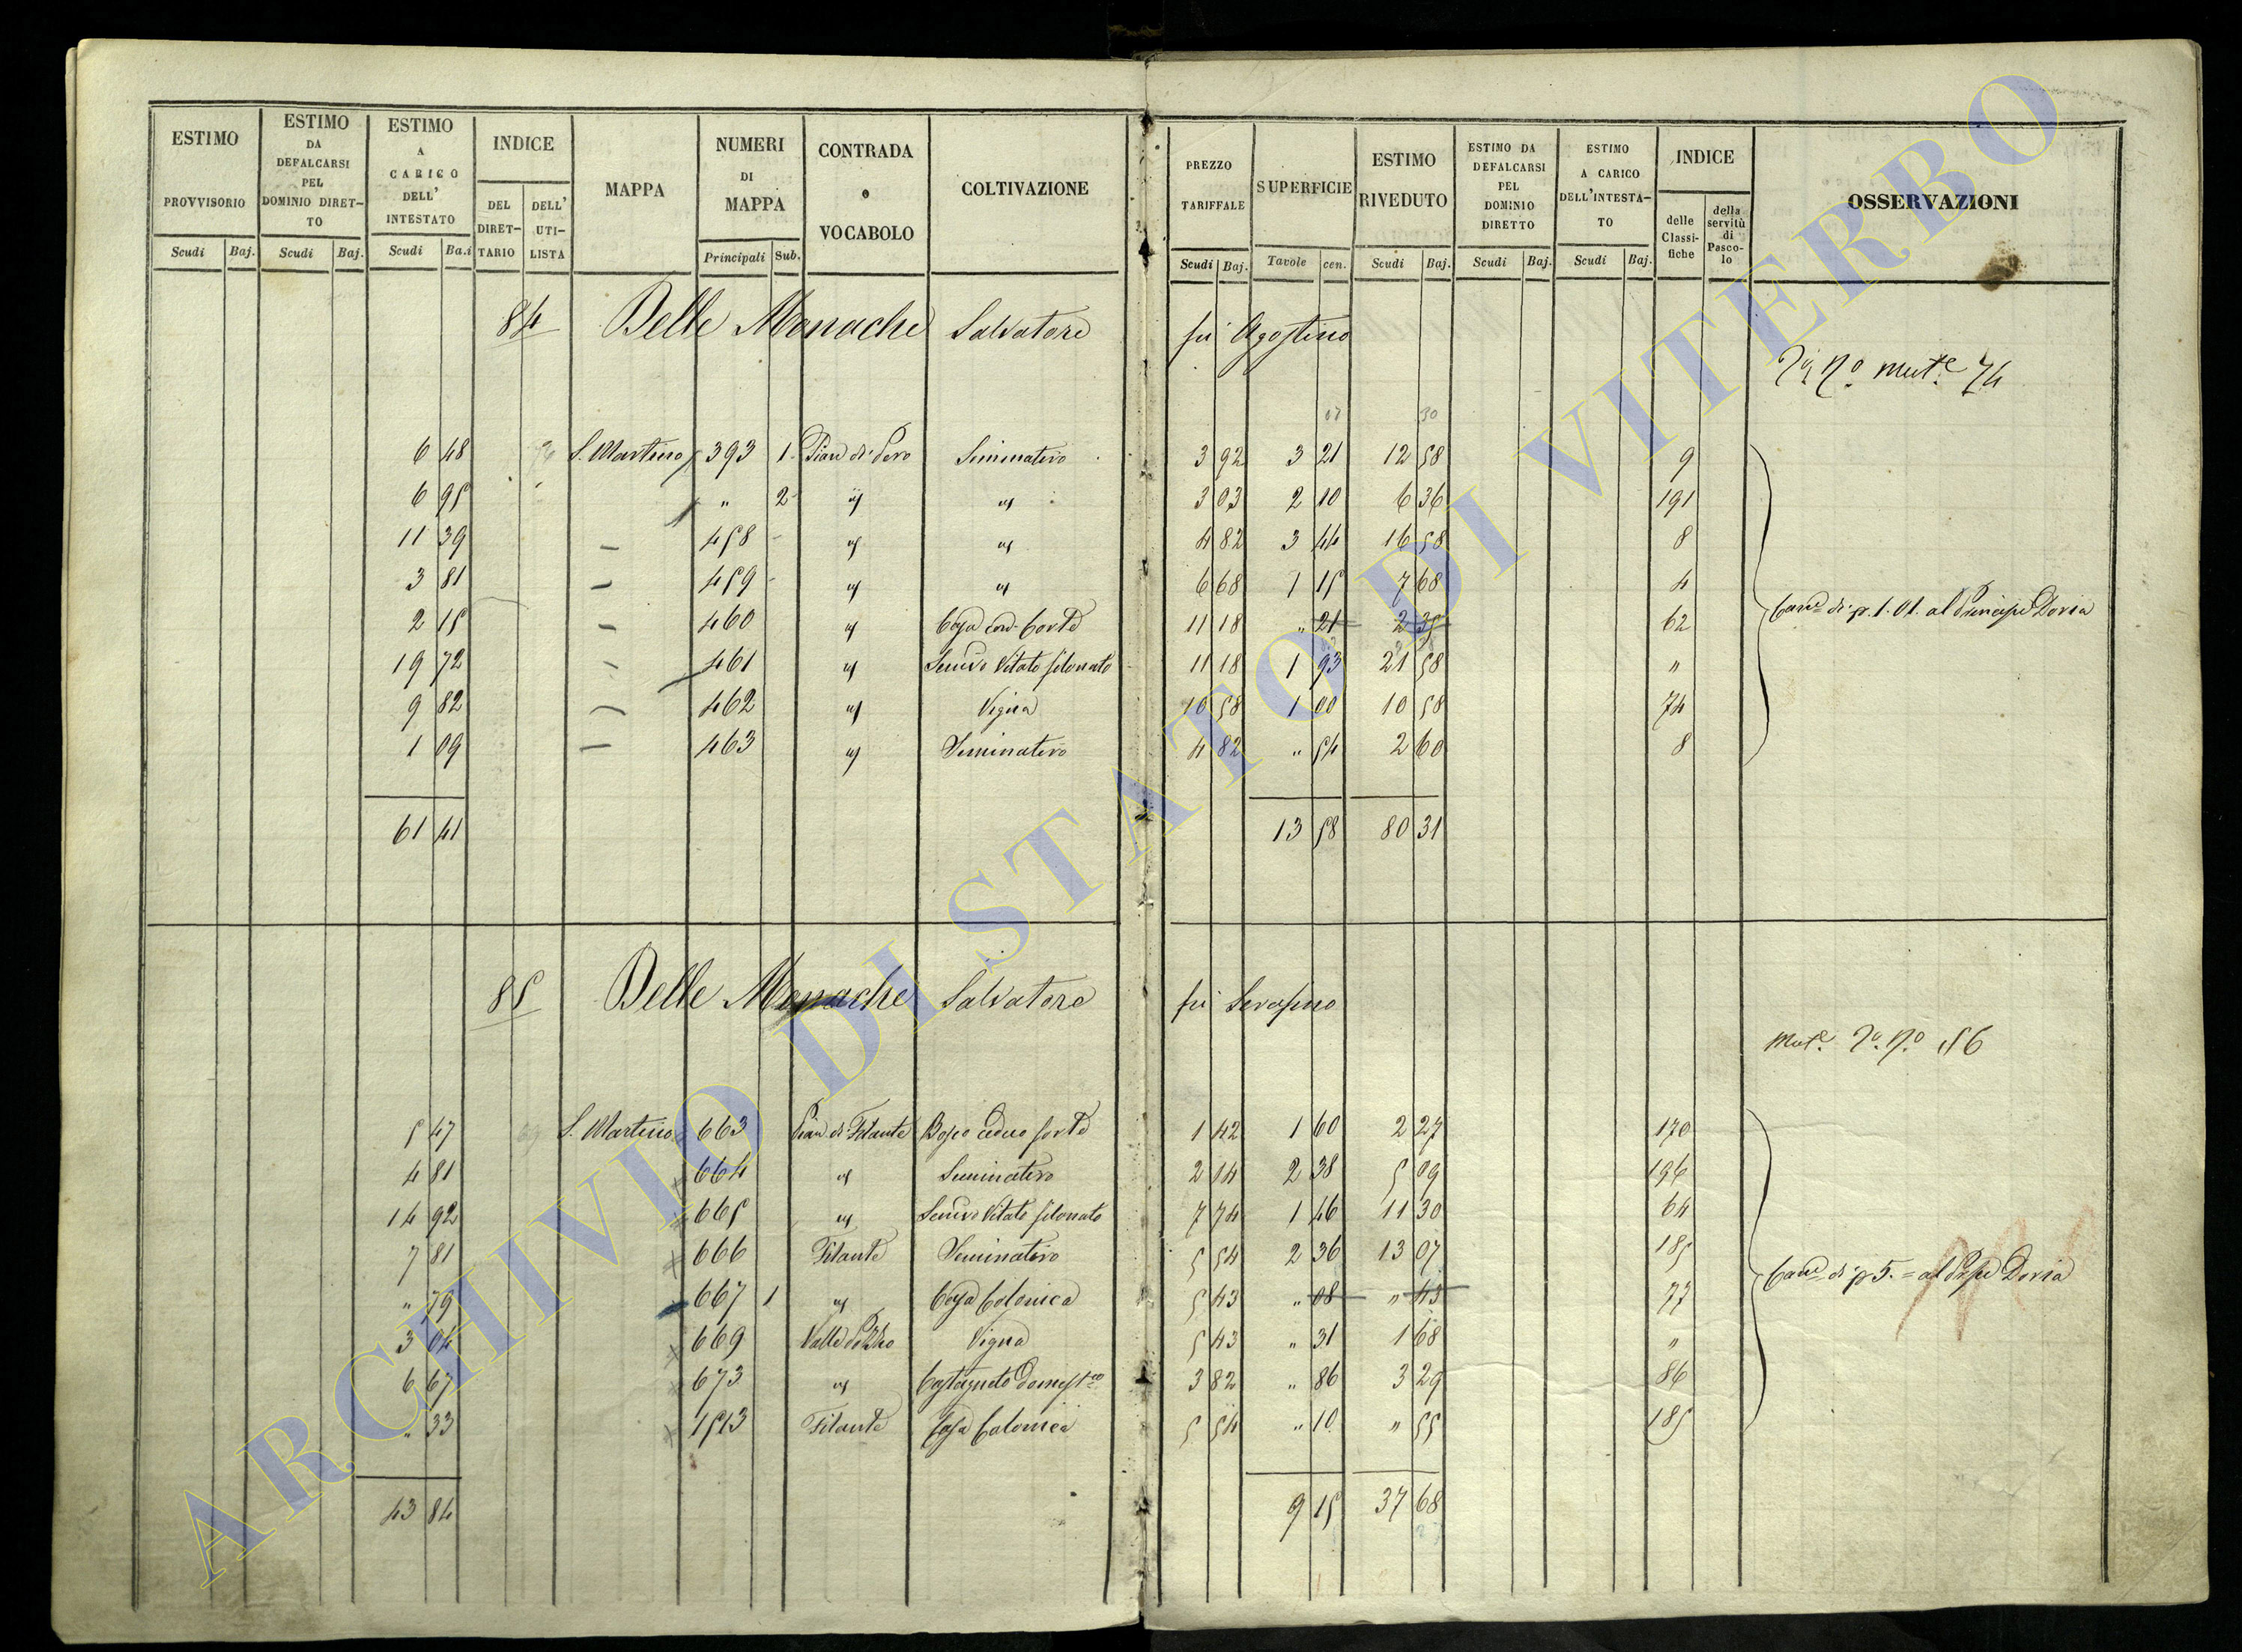 ESTIMO PROVVISORIO Scudi Baj.
ESTIMO DA DEFALCARSI PEL DOMINIO DIRET-TO Scudi Baj.
ESTIMO A CARICO DELL' INTESTATO Scudi Ba.i
INDICE DEL DIRET-TARIO DELL' UTI-LISTA
MAPPA
NUMERI DI MAPPA Principali Sub.
CONTRADA o VOCABOLO
COLTIVAZIONE
PREZZO TARIFFALE Scudi Baj.
SUPERFICIE Tavole cen.
ESTIMO RIVEDUTO Scudi Baj.
ESTIMO DA DEFALCARSI PEL DOMINIO DIRETTO Scudi Baj.
ESTIMO A CARICO DELL'INTESTA-TO Scudi Baj.
INDICE delle Classi-fiche della servitù di Pasco-lo
OSSERVAZIONI
84 Delle Monache Salvatore fu Agostino
N.o mut.e 74
07 30
6 48 S. Martino 393 1 Pian di Pero Seminativo 3 92 3 21 12 58 9
6 95 " 2 " " 3 03 2 10 6 36 191
11 39 458 " " 4 82 3 44 16 58 8
3 81 459 " " 6 68 1 15 7 68 4
2 15 460 " Casa con Corte 11 18 " 21 2 35 62
Can.e di p. 1.01. al Principe Doria
19 72 461 " Semivo Vitato filonato 11 18 1 93 21 58 "
9 82 462 " Vigna 10 58 1 00 10 58 74
1 09 463 " Seminativo 4 82 " 54 2 60 8
61 41 13 58 80 31
85 Delle Monache Salvatore fu Serafino
Mut.e N.o 56
5 47 S. Martino 663 Pian di Filante Bosco ceduo forte 1 42 1 60 2 27 170
4 81 664 " Seminativo 2 14 2 38 5 09 196
14 92 665 " Semivo Vitato filonato 7 74 1 46 11 30 64
7 81 666 Filante Seminativo 5 54 2 36 13 07 185
" 79 667 1 " Casa Colonica 5 43 " 08 " 43 77
Can.e di p 5. = al Doria
3 04 669 Valle Vigna 5 43 " 31 1 68 "
6 67 673 " Castagneto Domest.co 3 82 " 86 3 29 86
" 33 1513 Filante Casa Colonica 5 54 " 10 " 55 185
43 84 9 15 37 68
ARCHIVIO DI STATO DI VITERBO